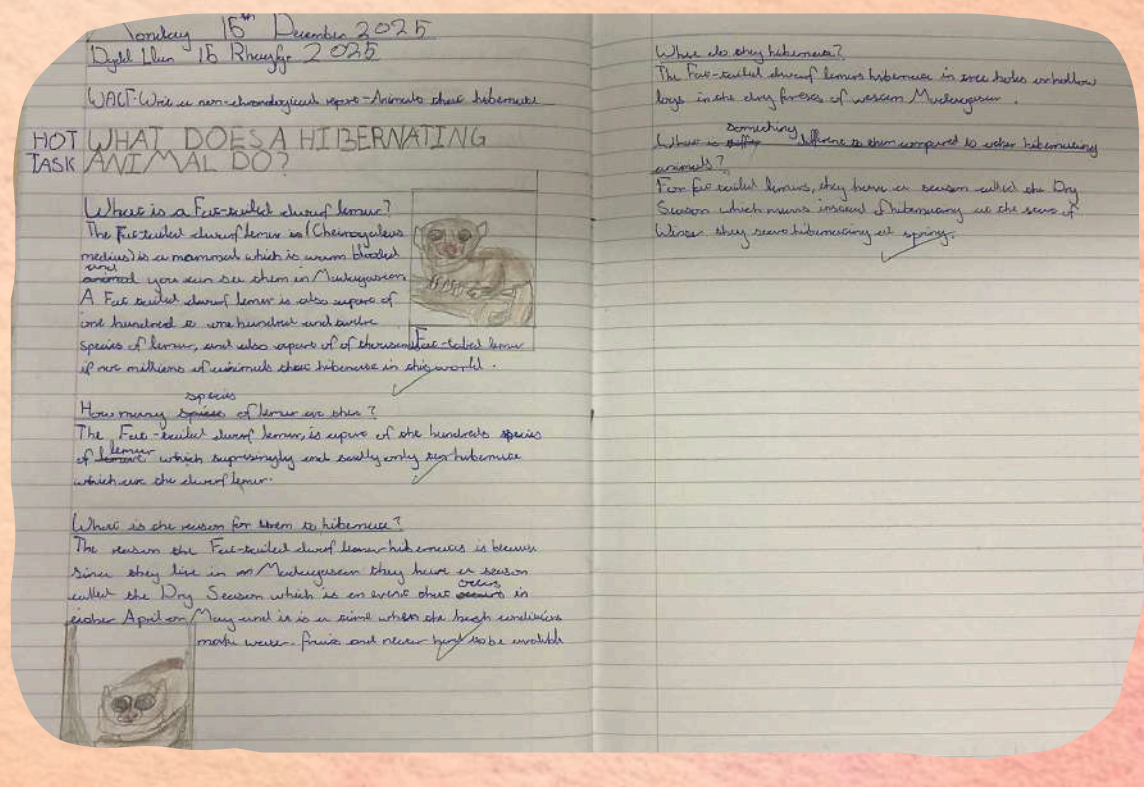 Monday 15th December 2025
Dydd Llun 15 Rhagfyr 2025
WALT-Write a non-chronological report-Animals that hibernate
HOT TASK
WHAT DOES A HIBERNATING
ANIMAL DO?
What is a Fat-tailed dwarf lemur?
The Fat-tailed dwarf lemur is (Cheirogaleus
medius) is a mammal which is warm blooded
and you can see them in Madagascar.
A Fat tailed dwarf lemur is also apart of
one hundred to one hundred and twelve
species of lemur, and also apart of of thousand
if not millions of animals that hibernate in this world.
Fat-tailed lemur
How many species of lemur are ther?
The Fat-tailed dwarf lemur, is apart of the hundreds species
of lemur which suprisingly and sadly only hibernate
which are the dwarf lemur.
What is the reason for them to hibernate?
The reason the Fat-tailed dwarf lemur hibernates is because
since they live in Madagascar they have a season
called the Dry Season which is an event that occurs in
either April or May and it is a time when the harsh conditions
make water. fruit and nectar hard to be avalible
Where do they hibernate?
The Fat-tailed dwarf lemurs hibernate in tree holes or hollow
logs in the dry forests of western Madagascar.
What is something different to them compared to other hibernating
animals?
For fat tailed lemurs, they have a season called the Dry
Season which means instead of hibernating at the start of
Winter they start hibernating at spring.